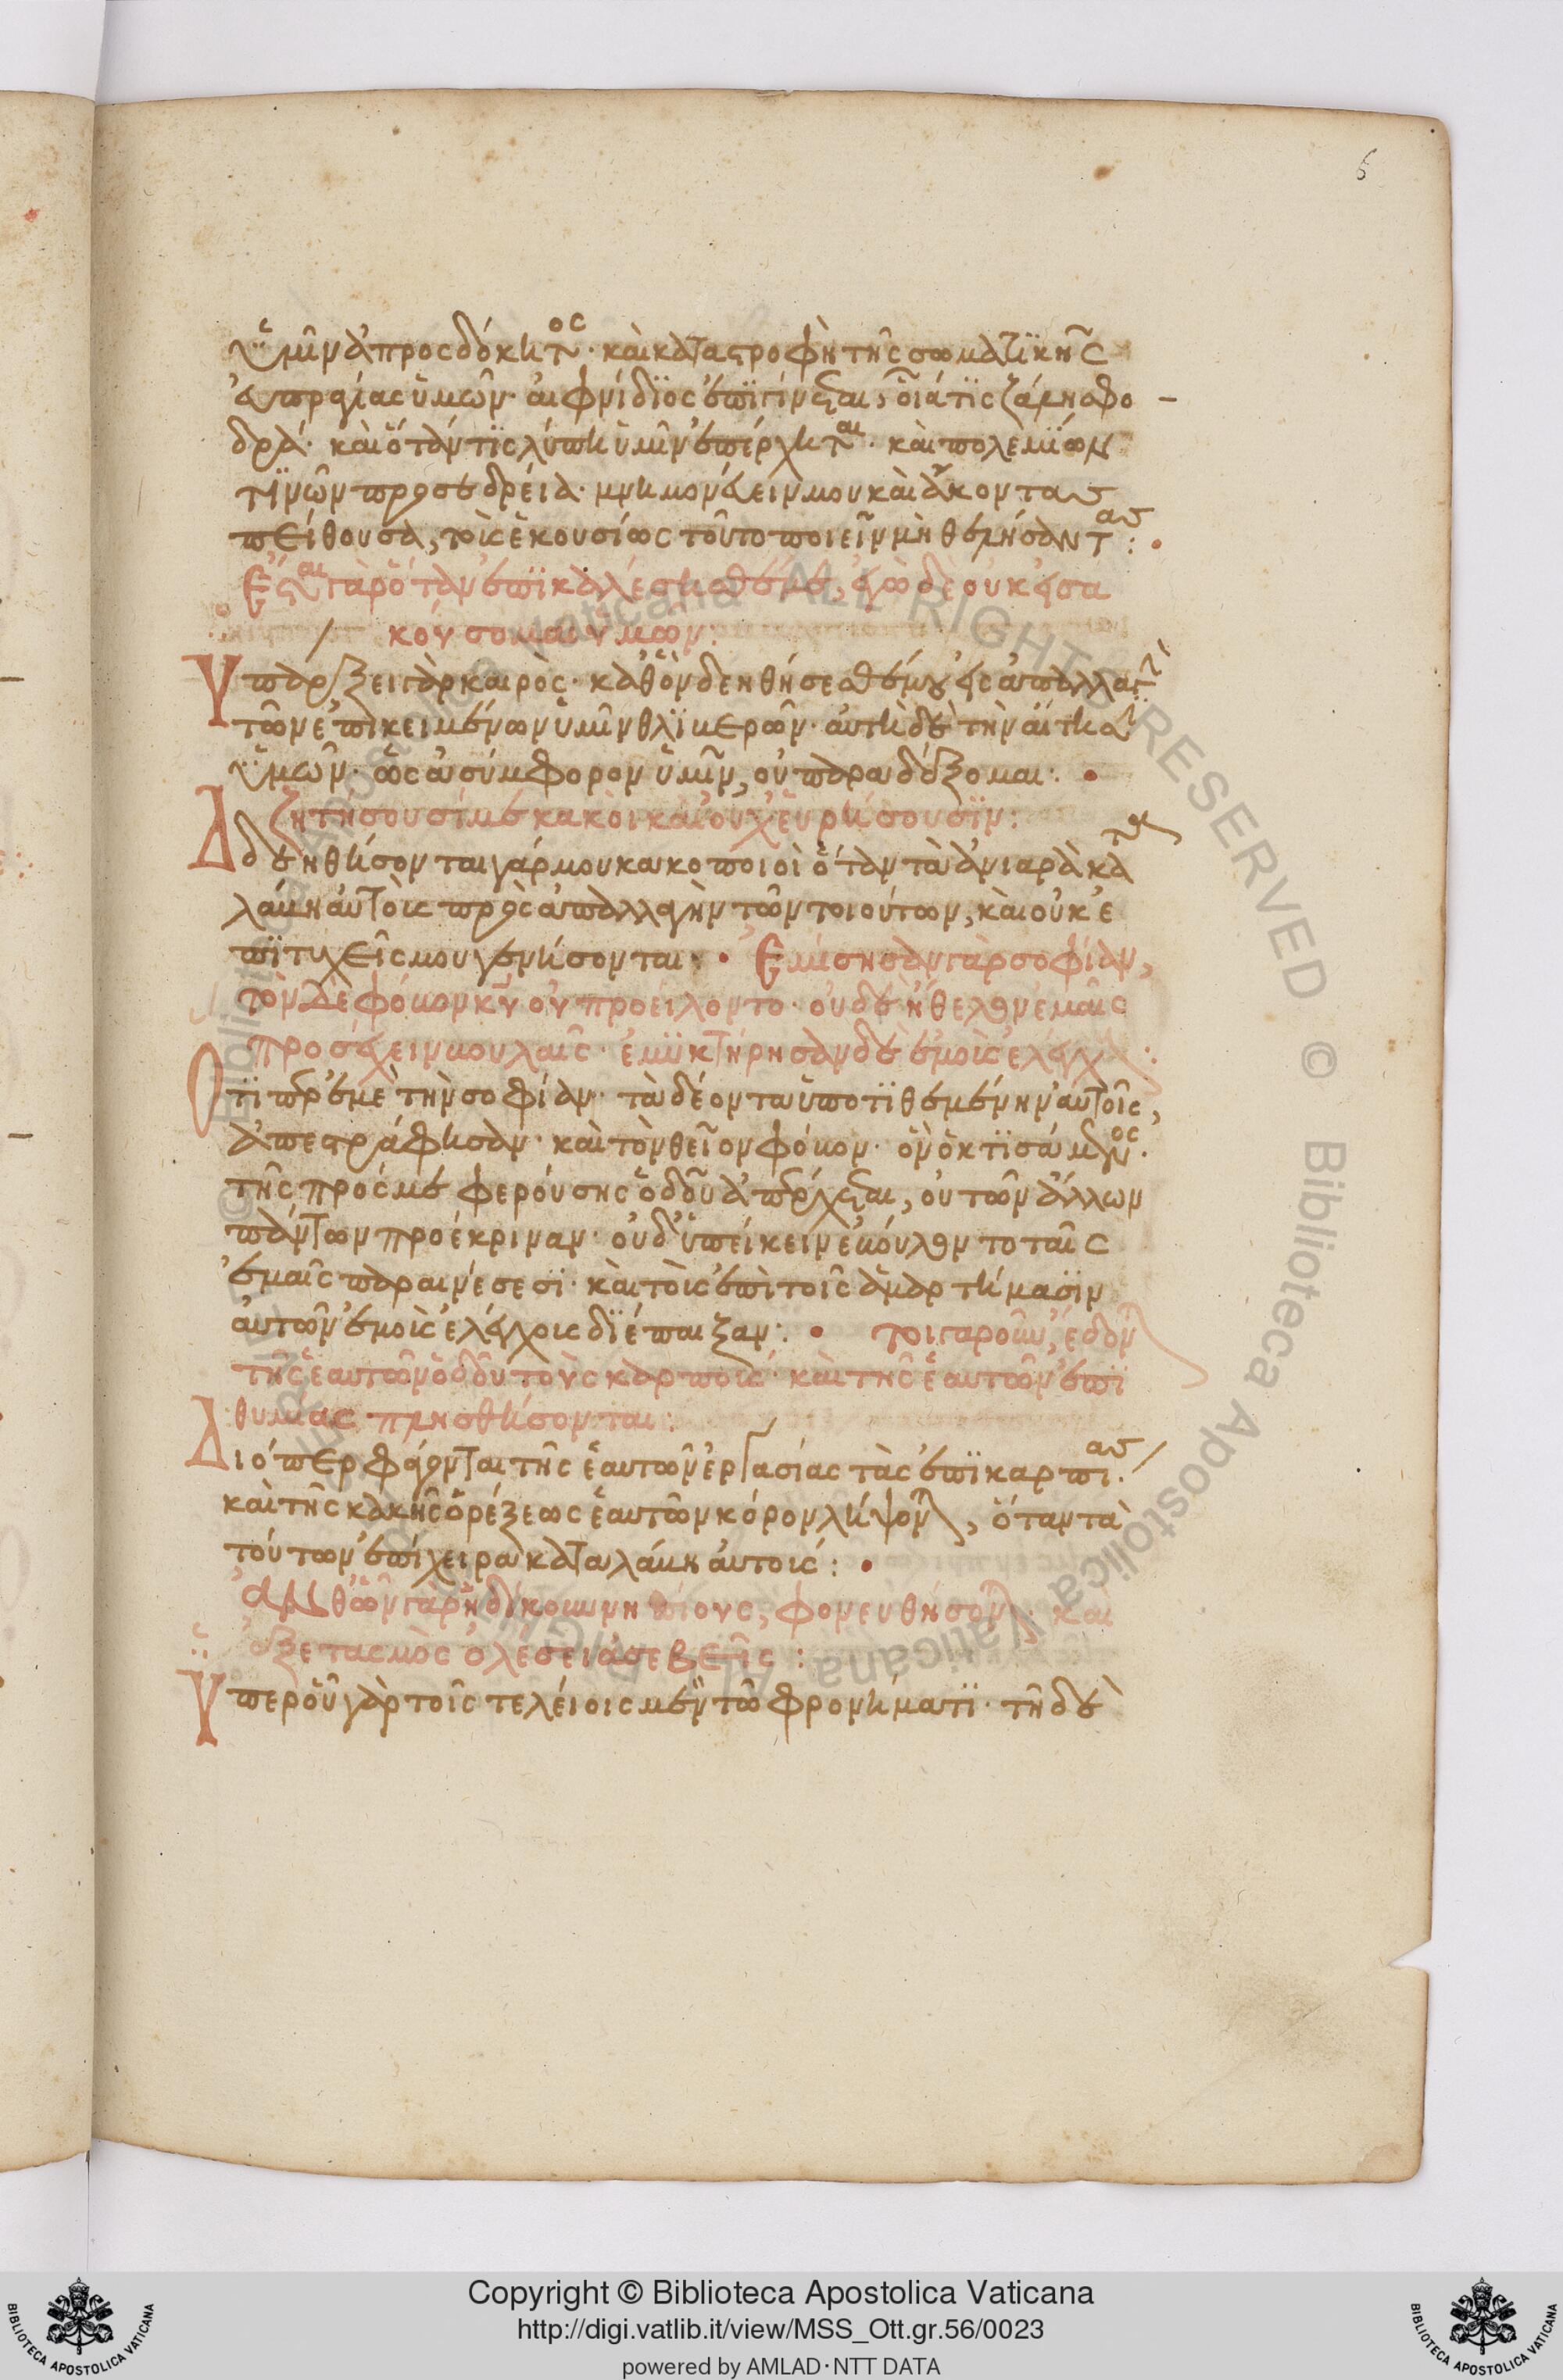 6
ὑμῖν ἀπροσδόκητος· καὶ καταστροφὴ τῆς σωματικῆς
εὐπραγίας ὑμῶν· αἰφνίδιος ἐπιγίνεται, οἷά τις ζάλη σφο
δρά· καὶ ὅταν τις λύπη ὑμῖν ἐπέρχηται· καὶ πολεμίων
τινῶν προσεδρεία· μνημονεύειν μου καὶ ἄκοντας
πείθουσα, τοῖς ἑκουσίως τοῦτο ποιεῖν μὴ θελήσαντας:
Ἔσται γὰρ ὅταν ἐπικαλέσησθέ με, ἐγὼ δὲ οὐκ εἰσα
κούσομαι ὑμῶν:
Ὑπάρξει γὰρ καιρὸς· καθ' ὃν δεηθήσεσθέ μου εἰς ἀπαλλαγὴν
τῶν ἐπικειμένων ὑμῖν θλιβερῶν· αὐτὴ δὲ τὴν αἴτησιν
ὑμῶν· ὡς ἀσύμφορον ὑμῖν, οὐ παραδέξομαι:
ζητήσουσί με κακοὶ καὶ οὐχ εὑρήσουσιν:
Δεηθήσονται γάρ μου κακοποιοὶ ὅταν τὰ ἀνιαρὰ κατα
λάβη αὐτοῖς πρὸς ἀπαλλαγὴν τῶν τοιούτων, καὶ οὐκ ἐ
πιτυχεῖς μου γενήσονται: Ἐμίσησαν γὰρ σοφίαν,
τὸν δὲ φόβον κυ οὐ προείλοντο· οὐδὲ ἤθελον ἐμαῖς
προσέχειν βουλαῖς· ἐμυκτήρησαν δὲ ἐμοὺς ἐλέγχους:
Ὅτι περ ἐμὲ τὴν σοφίαν· τὰ δέοντα ὑποτιθεμένην αὐτοῖς,
ἀπεστράφησαν· καὶ τὸν θεῖον φόβον· ὃν ὁ κτισάμενος.
τῆς πρός με φερούσης ὁδοῦ ἀπάρχεται, οὐ τῶν ἄλλων
πάντων προέκριναν· οὐδ' ὑπείκειν ἐβούλοντο ταῖς
ἐμαῖς παραινέσεσι· καὶ τοῖς ἐπὶ τοῖς ἁμαρτήμασιν
αὐτῶν ἐμοῖς ἐλέγχοις διέπαιξαν: τοιγαροῦν, ἔδον
τῆς ἑαυτῶν ὁδοῦ τοὺς καρποὺς· καὶ τῆς ἑαυτῶν ἐπι
θυμίας πλησθήσονται:
Διόπερ φάγονται τῆς ἑαυτῶν ἐργασίας τὰς ἐπικαρπίας.
καὶ τῆς κακῆς ὀρέξεως ἑαυτῶν κόρον λήψονται, ὅταν τὰ
τούτων ἐπίχειρα καταλάβη αὐτοίς:
ἀνθ' ὧν γὰρ ἠδίκουν νηπίους, φονευθήσονται· καὶ
ἐξετασμὸς ὀλέσει ἀσεβεῖς:
Ὑπὲρ οὗ γὰρ τοῖς τελείοις μὲν τῶ φρονήματι· τῆ δὲ
Copyright © Biblioteca Apostolica Vaticana
http://digi.vatlib.it/view/MSS_Ott.gr.56/0023
powered by AMLAD·NTT DATA